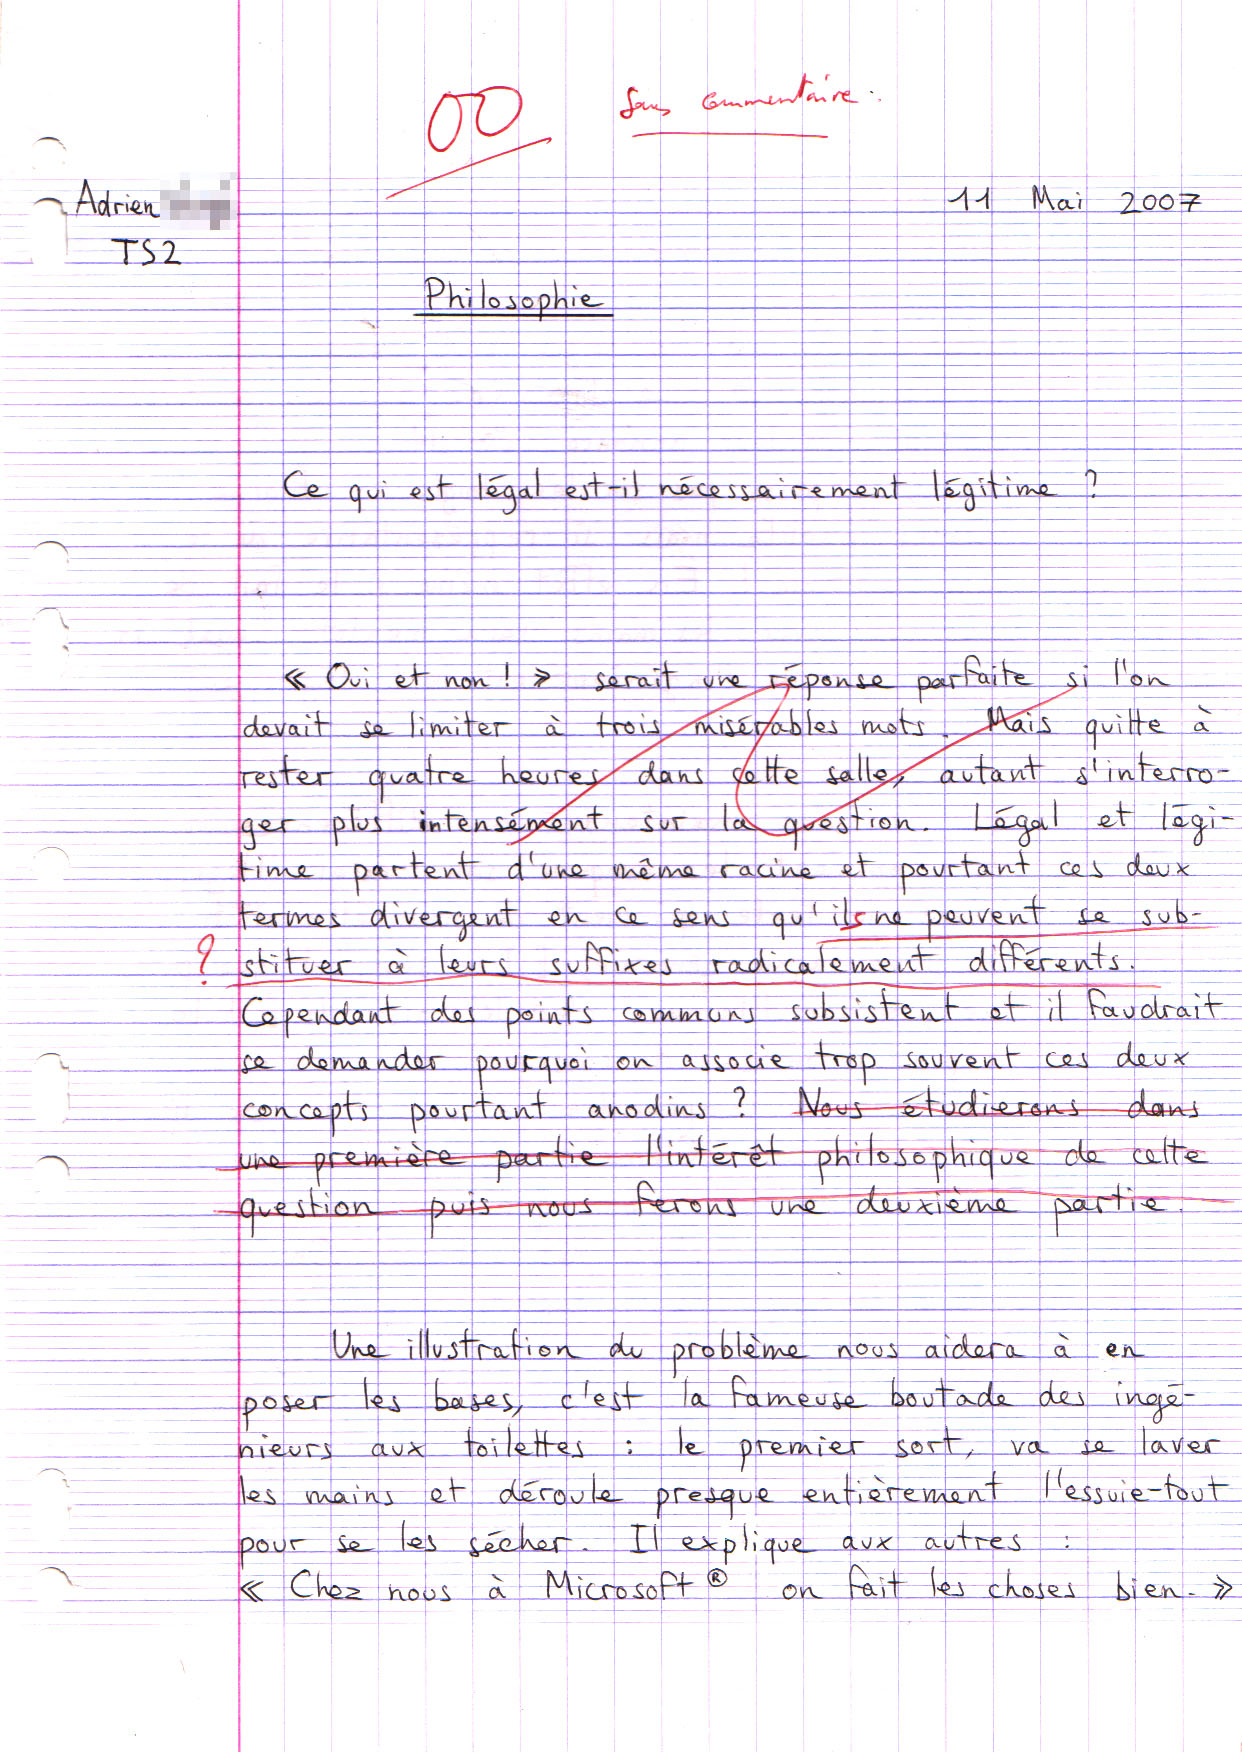 00 Sans commentaire.
Adrien 11 Mai 2007
TS2
Philosophie
Ce qui est légal est-il nécessairement légitime ?
« Oui et non ! » serait une réponse parfaite si l'on
devait se limiter à trois misérables mots. Mais quitte à
rester quatre heures dans cette salle, autant s'interro-
ger plus intensément sur la question. Légal et légi-
time partent d'une même racine et pourtant ces deux
termes divergent en ce sens qu'ils ne peuvent se sub-
? stituer à leurs suffixes radicalement différents.
Cependant des points communs subsistent et il faudrait
se demander pourquoi on associe trop souvent ces deux
concepts pourtant anodins ? Nous étudierons dans
une première partie l'intérêt philosophique de cette
question puis nous ferons une deuxième partie.
Une illustration du problème nous aidera à en
poser les bases, c'est la fameuse boutade des ingé-
nieurs aux toilettes : le premier sort, va se laver
les mains et déroule presque entièrement l'essuie-tout
pour se les sécher. Il explique aux autres :
« Chez nous à Microsoft® on fait les choses bien. »